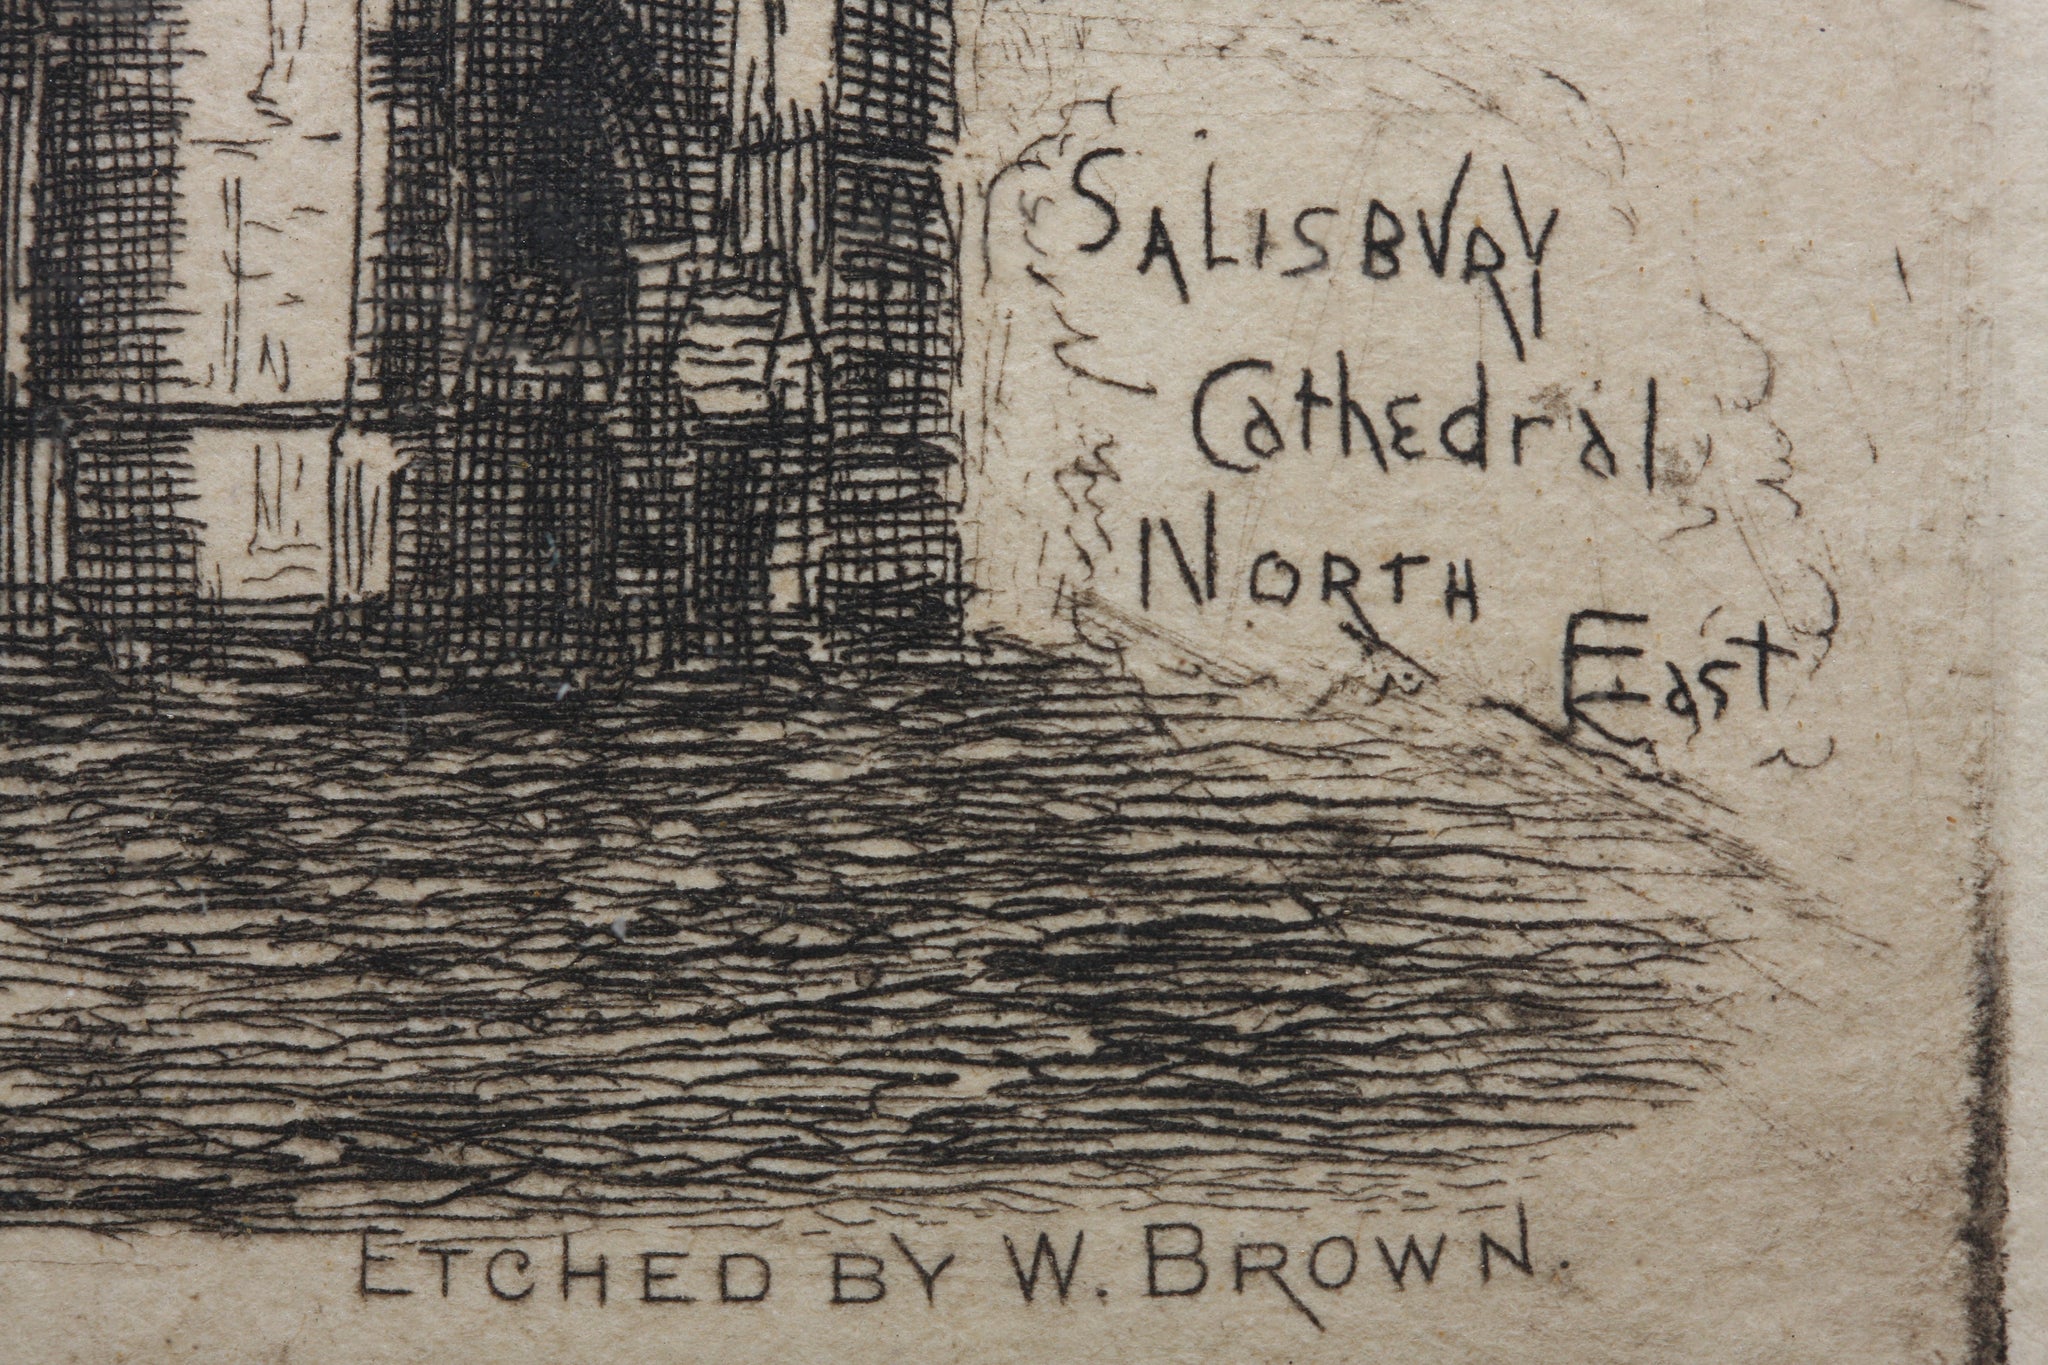 SALISBVRY
CathEdral
NORTH
East
ETCHED BY W. BROWN.